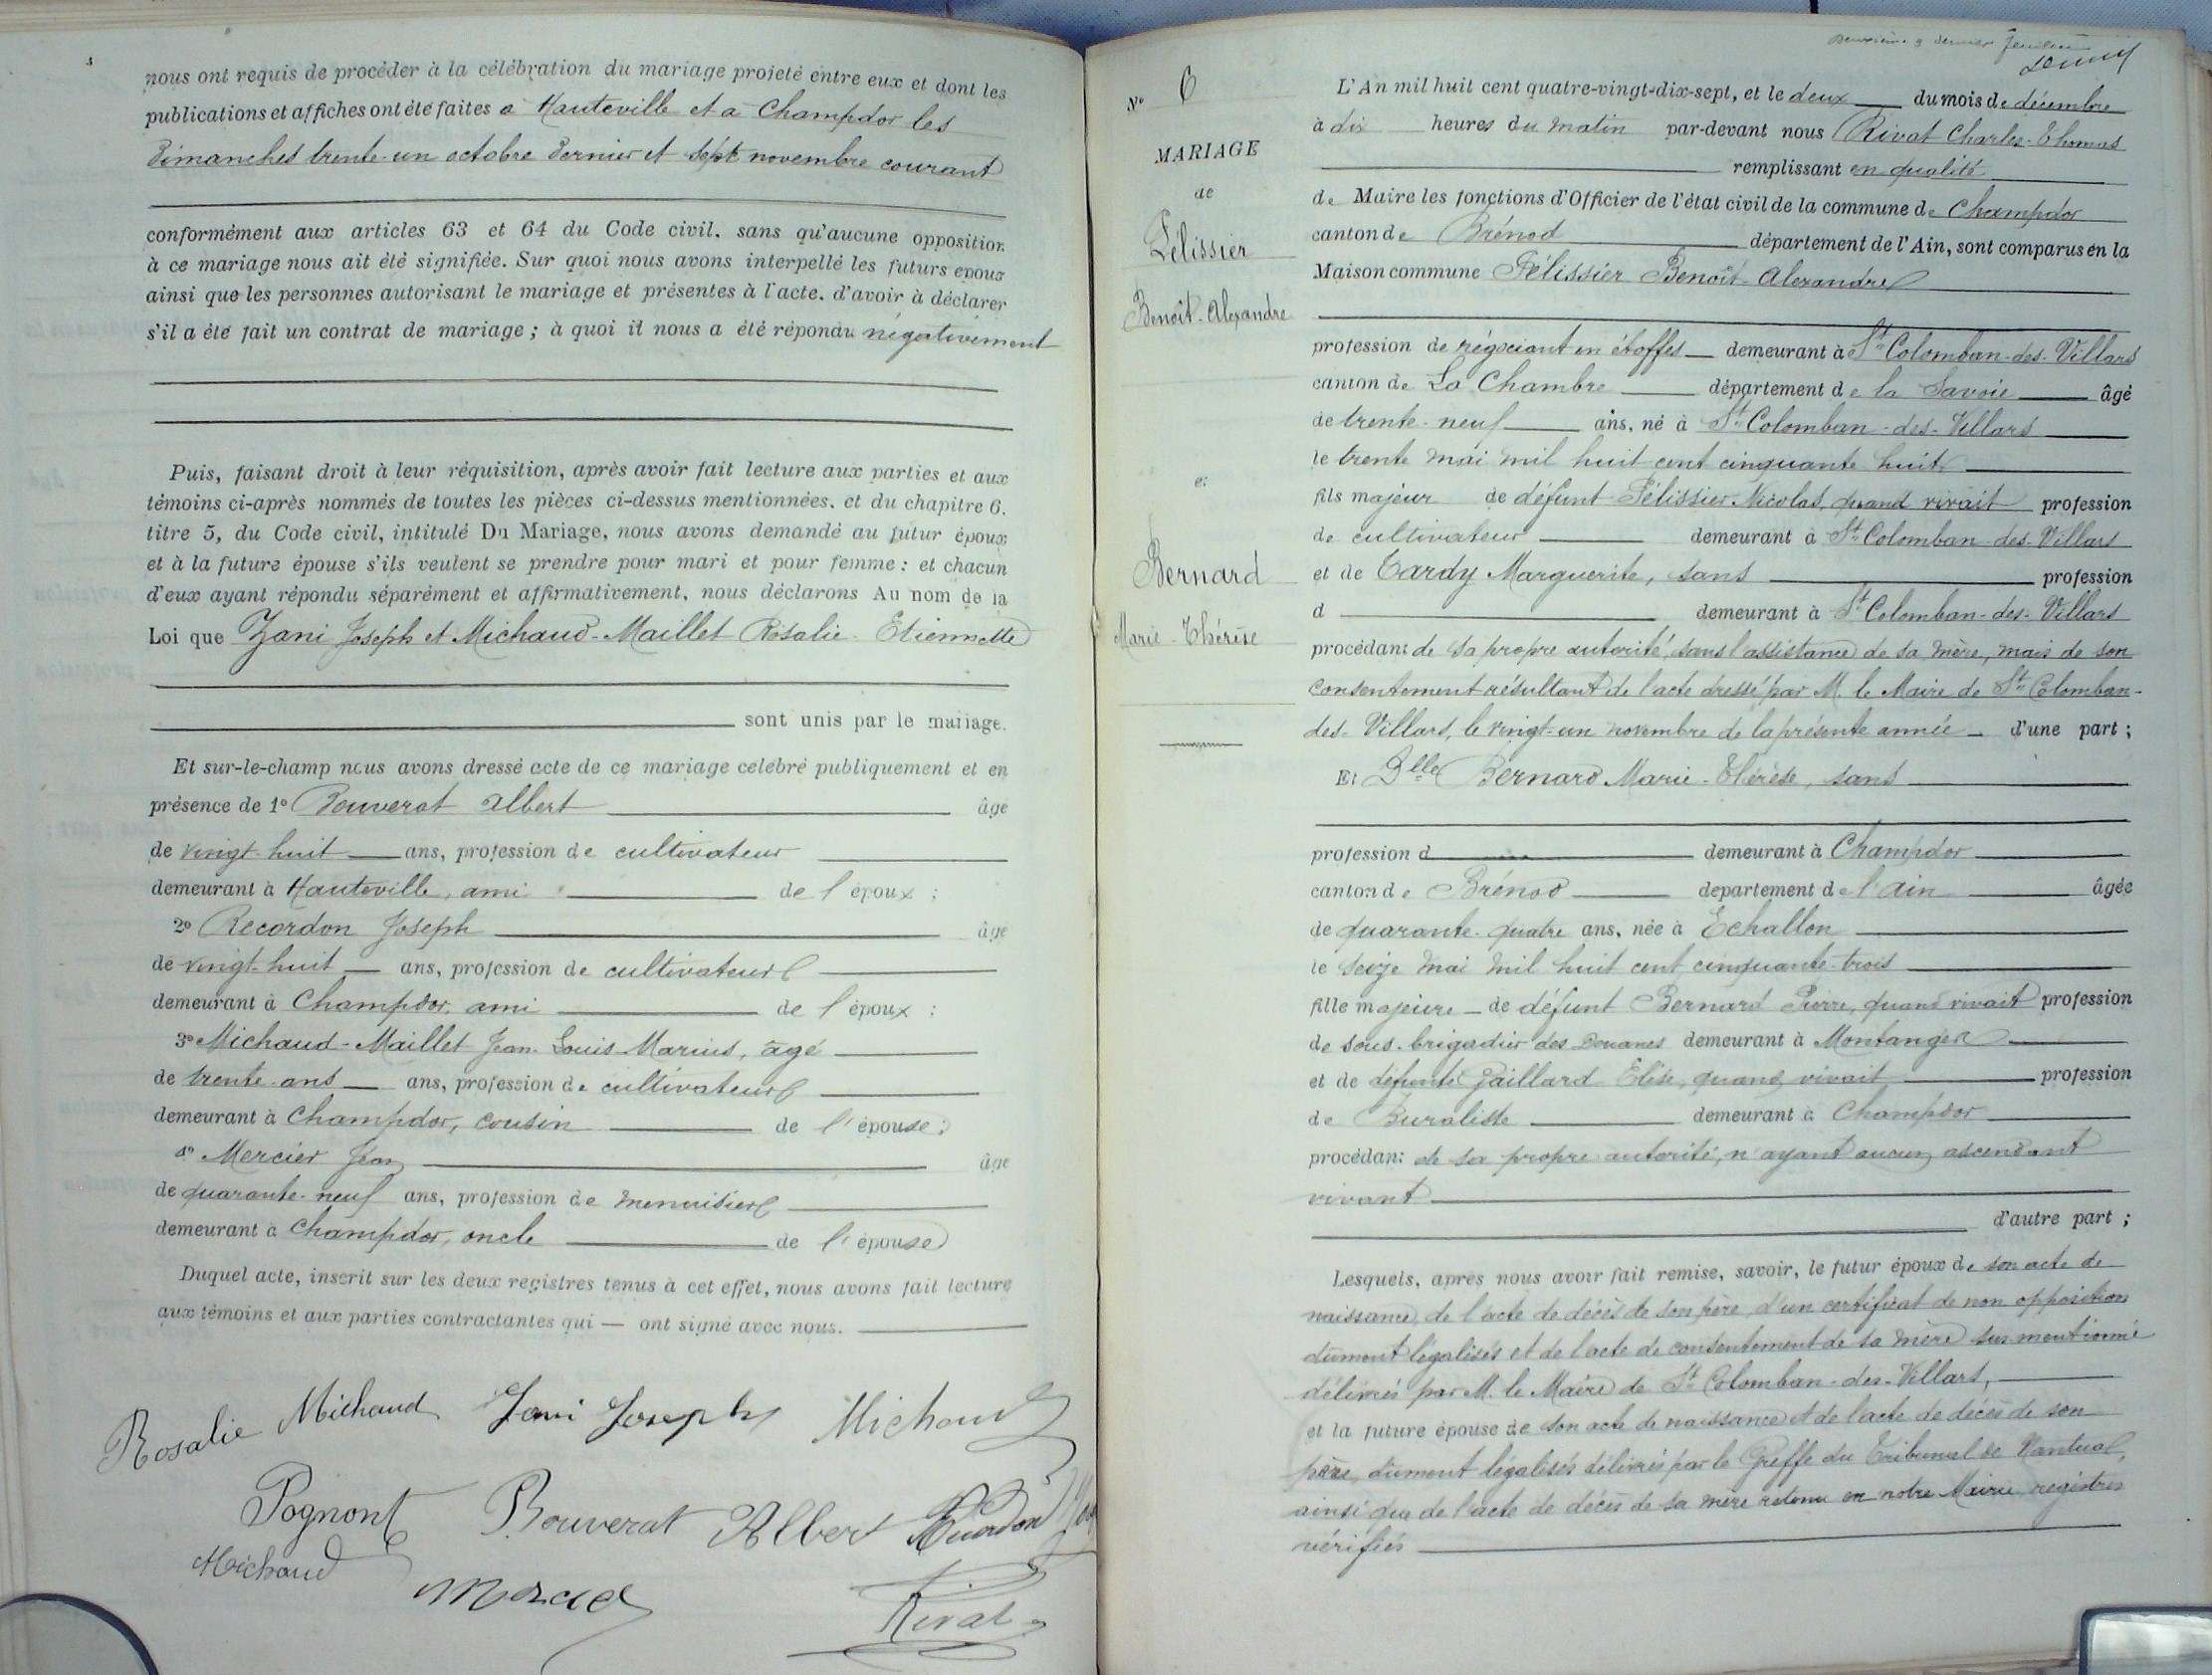 nous ont requis de procéder à la célébration du mariage projeté entre eux et dont les
publications et affiches ont été faites à Hauteville et à Champdor les
Dimanches trente-un octobre dernier et sept novembre courant
conformément aux articles 63 et 64 du Code civil, sans qu'aucune opposition
à ce mariage nous ait été signifiée. Sur quoi nous avons interpellé les futurs époux
ainsi que les personnes autorisant le mariage et présentes à l'acte, d'avoir à déclarer
s'il a été fait un contrat de mariage; à quoi il nous a été répondu négativement
Puis, faisant droit à leur réquisition, après avoir fait lecture aux parties et aux
témoins ci-après nommés de toutes les pièces ci-dessus mentionnées, et du chapitre 6,
titre 5, du Code civil, intitulé Du Mariage, nous avons demandé au futur époux
et à la future épouse s'ils veulent se prendre pour mari et pour femme: et chacun
d'eux ayant répondu séparément et affirmativement, nous déclarons Au nom de la
Loi que Zani Joseph et Michaud-Maillet Rosalie Etiennette
sont unis par le mariage.
Et sur-le-champ nous avons dressé acte de ce mariage célébré publiquement et en
présence de 1° Bouverat Albert âgé
de vingt-huit ans, profession de cultivateur
demeurant à Hauteville, ami de l'époux;
2° Recordon Joseph âgé
de vingt-huit ans, profession de cultivateur
demeurant à Champdor, ami de l'époux:
3° Michaud-Maillet Jean-Louis Marius, âgé
de trente ans ans, profession de cultivateur
demeurant à Champdor, cousin de l'épouse;
4° Mercier Jean âgé
de quarante-neuf ans, profession de menuisier
demeurant à Champdor, oncle de l'épouse
Duquel acte, inscrit sur les deux registres tenus à cet effet, nous avons fait lecture
aux témoins et aux parties contractantes qui — ont signé avec nous.
Rosalie Michaud Zani Joseph Michaud
Pognont Bouverat Albert Recordon
Michaud Mercier Rivat
Deuxième & dernier feuillet
N° 6
MARIAGE
de
Pélissier
Benoît-Alexandre
et
Bernard
Marie-Thérèse
L'An mil huit cent quatre-vingt-dix-sept, et le deux du mois de décembre
à dix heures du matin par-devant nous Rivat Charles-Thomas
remplissant en qualité
de Maire les fonctions d'Officier de l'état civil de la commune de Champdor
canton de Brénod département de l'Ain, sont comparus en la
Maison commune Pélissier Benoît-Alexandre
profession de négociant en étoffes demeurant à St-Colomban-des-Villars
canton de La Chambre département de la Savoie âgé
de trente-neuf ans, né à St-Colomban-des-Villars
le trente mai mil huit cent cinquante huit
fils majeur de défunt Pélissier Nicolas, quand vivait profession
de cultivateur demeurant à St-Colomban-des-Villars
et de Tardy Marguerite, sans profession
d demeurant à St-Colomban-des-Villars
procédant de sa propre autorité, sans l'assistance de sa mère, mais de son
consentement résultant de l'acte dressé par M. le Maire de St-Colomban-
des-Villars, le vingt-un novembre de la présente année d'une part;
Et Dlle Bernard Marie-Thérèse, sans
profession d demeurant à Champdor
canton de Brénod département de l'Ain âgée
de quarante-quatre ans, née à Echallon
le seize mai mil huit cent cinquante-trois
fille majeure de défunt Bernard Pierre, quand vivait profession
de sous-brigadier des Douanes demeurant à Montanges
et de défunte Gaillard Elise, quand vivait profession
de Buraliste demeurant à Champdor
procédant de sa propre autorité, n'ayant aucun ascendant
vivant
d'autre part;
Lesquels, après nous avoir fait remise, savoir, le futur époux de son acte de
naissance, de l'acte de décès de son père, d'un certificat de non opposition
dûment légalisés et de l'acte de consentement de sa mère sus mentionné
délivrés par M. le Maire de St-Colomban-des-Villars,
et la future épouse de son acte de naissance et de l'acte de décès de son
père, dûment légalisés délivrés par le Greffe du Tribunal de Nantua,
ainsi que de l'acte de décès de sa mère retenu en notre Mairie, registres
vérifiés